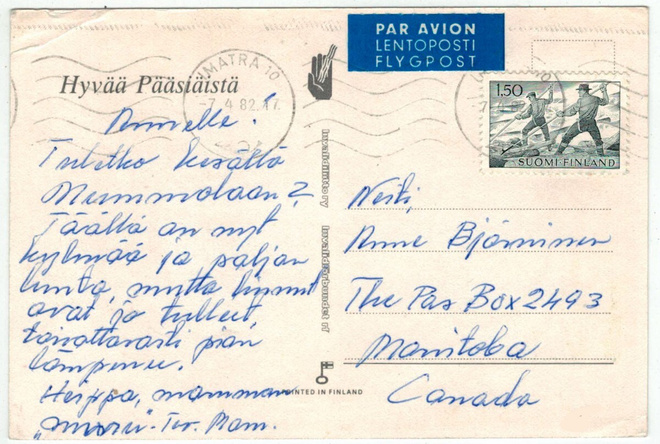 PAR AVION
LENTOPOSTI
FLYGPOST
Hyvää Pääsiäistä
IMATRA 10
-7. 4. 82. 17
1.50
SUOMI-FINLAND
Annelle!
Tuletko kesällä
Mummolaan?
Täällä on nyt
kylmää ja paljon
lunta, mutta linnut
ovat jo tulleet,
toivottavasti pian
lämpenee.
Heippa, mamman
"muru" Ter. Mam.
Invalidiliitto ry
Invalidförbundet rf
PRINTED IN FINLAND
Neiti,
Anne Björninen
The Pas Box 2493
Manitoba
Canada